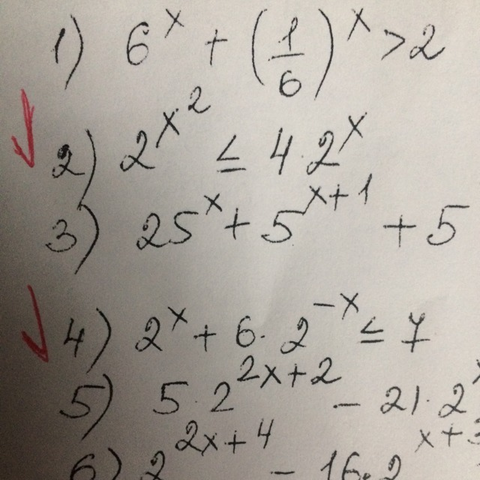 1) 6^x + (1/6)^x > 2
2) 2^{x^2} ≤ 4·2^x
3) 25^x + 5^{x+1} + 5
4) 2^x + 6·2^{-x} ≤ 7
5) 5·2^{2x+2} - 21·2^x
6) 2^{2x+4} - 16·2^{x+3}